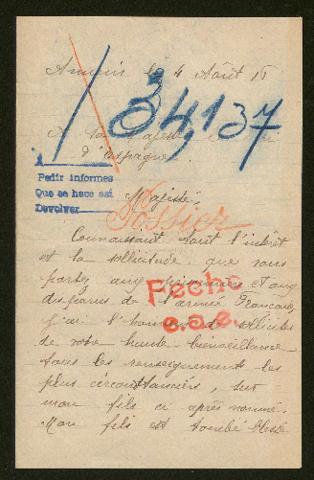 le 4 Août 15
34,137
A Sa Majesté
d'Espagne
Pedir informes
Que se hace asi
Devolver
Majesté,
Connaissant tout l'intérêt
et la sollicitude que vous
portez aux prisonniers et aux
disparus de l'armée Française,
j'ai l'honneur de solliciter
Fecho
c.a.e.
de votre haute bienveillance
tous les renseignements les
plus circonstanciés, sur
mon fils ci après nommé.
Mon fils est tombé blessé